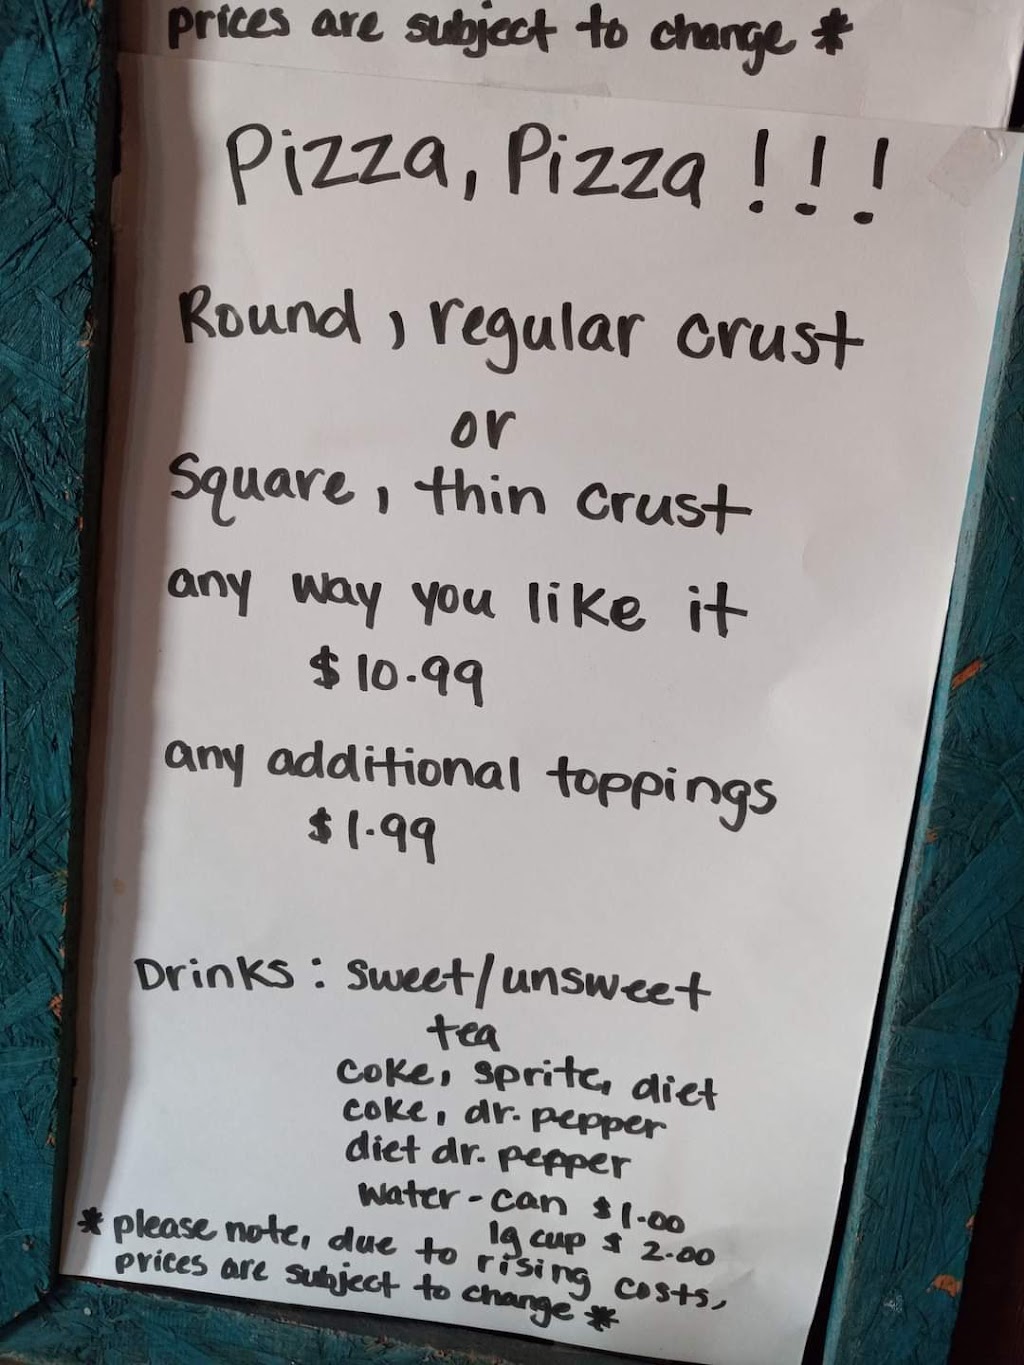 prices are subject to change *
Pizza, Pizza !!!
Round, regular crust
or
Square, thin crust
any way you like it
$10.99
any additional toppings
$1.99
Drinks: sweet/unsweet
tea
coke, sprite, diet
coke, dr. pepper
diet dr. pepper
water - can $1.00
lg cup $2.00
* please note, due to rising costs,
prices are subject to change *